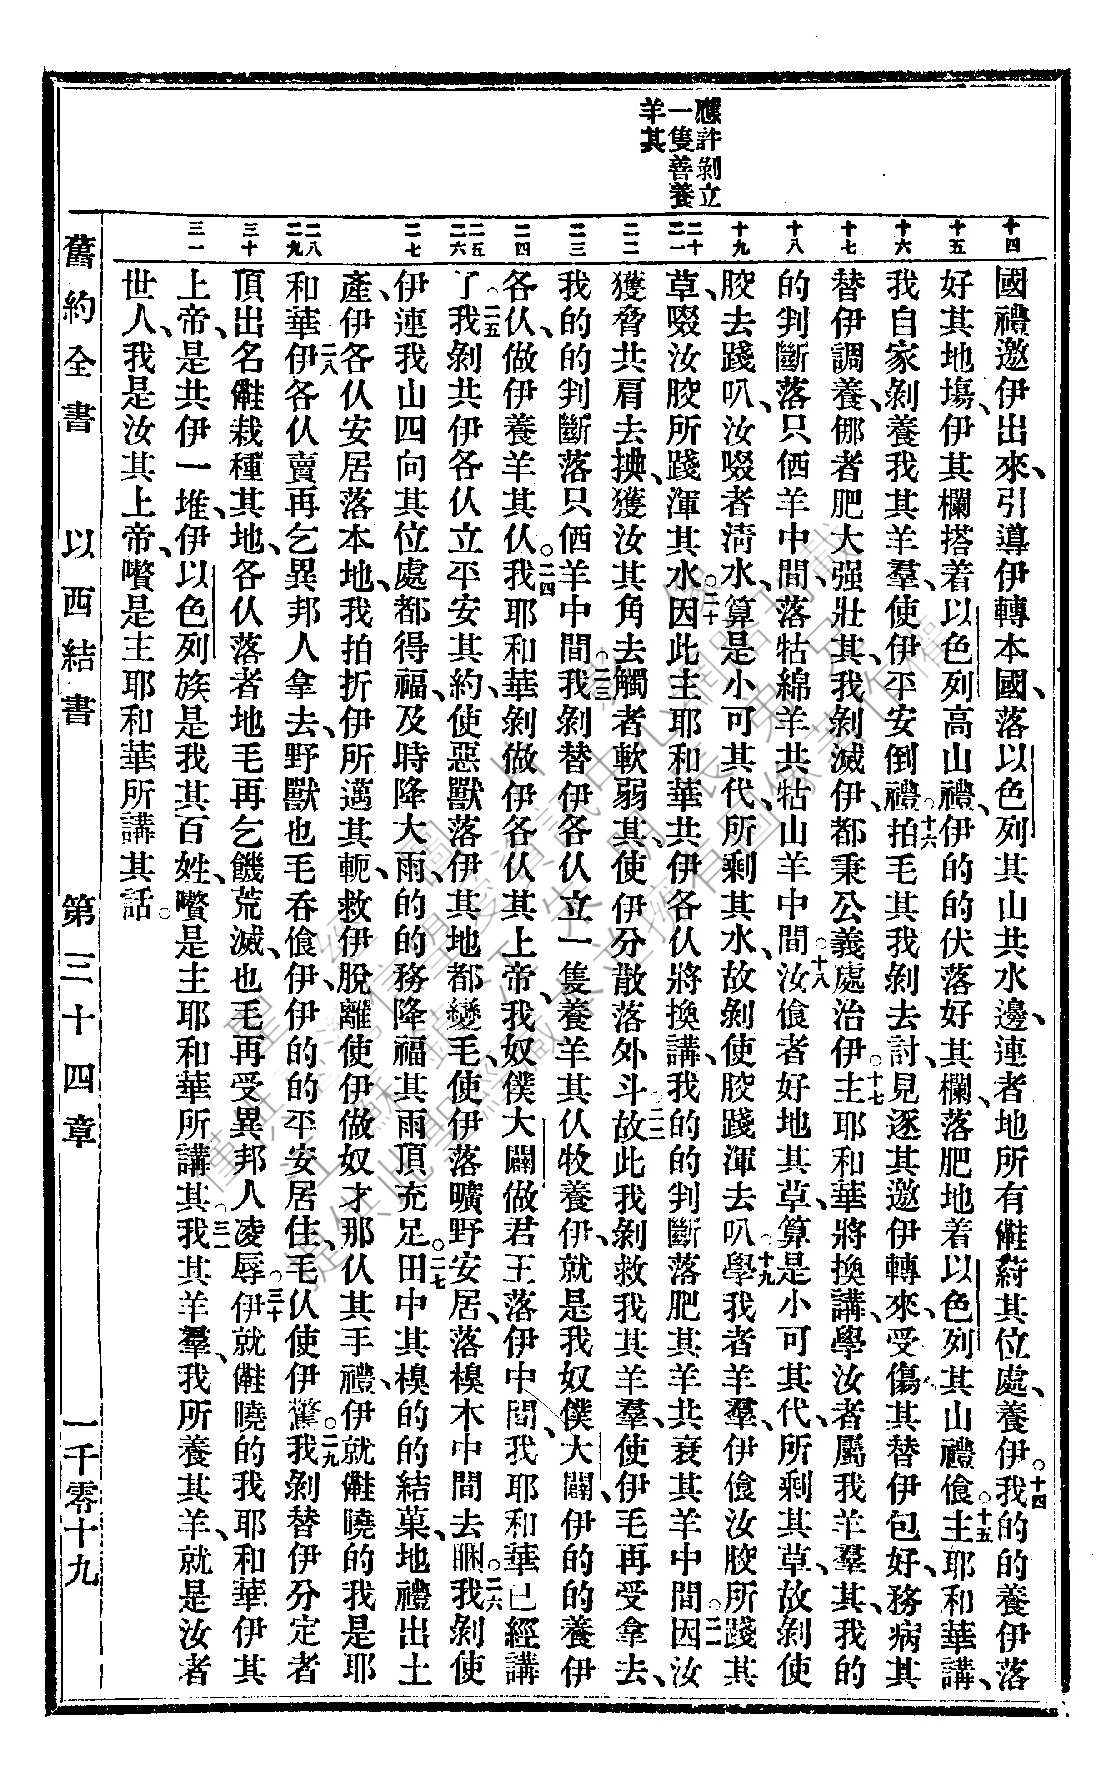 應許剝立
一隻善養
羊其
十四 十五 十六 十七 十八 十九 二十 二一 二二 二三 二四 二五 二六 二七 二八 二九 三十 三一
國禮邀伊出來、引導伊轉本國、落以色列其山共水邊、連者地所有㒰葤其位處、養伊。十四我的的養伊落
好其地塲、伊其欄搭着以色列高山禮、伊的的伏落好其欄、落肥地着以色列其山禮倉。十五主耶和華講、
我自家剝養我其羊羣、使伊平安倒禮。十六拍毛其我剝去討、見逐其邀伊轉來、受傷其替伊包好、務病其
替伊調養、㑚者肥大强壯其、我剝滅伊、都秉公義處治伊。十七主耶和華將換講、學汝者屬我羊羣其、我的
的判斷落只㑚羊中間、落牯綿羊共牯山羊中間。十八汝倉者好地其草、算是小可其代、所剩其草、故剝使
骹去踐叭、汝啜者清水、算是小可其代、所剩其水、故剝使骹踐渾去叭。十九學我者羊羣、伊倉汝骹所踐其
草、啜汝骹所踐渾其水。二十因此主耶和華共伊各仈將換講、我的的判斷落肥其羊共衰其羊中間。二一因汝
獲脅共肩去㧻、獲汝其角去觸者軟弱其、使伊分散落外斗。二二故此我剝救我其羊羣、使伊毛再受拿去、
我的的判斷落只㑚羊中間。二三我剝替伊各仈立一隻養羊其仈牧養伊、就是我奴僕大闢、伊的的養伊
各仈、做伊養羊其仈。二四我耶和華剝做伊各仈其上帝、我奴僕大闢做君王落伊中間、我耶和華已經講
了。二五我剝共伊各仈立平安其約、使惡獸落伊其地都變毛、使伊落曠野安居、落樑木中間去睏。二六我剝使
伊連我山四向其位處都得福、及時降大雨、的的務降福其雨頂充足。二七田中其樑的的結菓、地禮出土
產、伊各仈安居落本地、我拍折伊所邁其軛、救伊脫離使伊做奴才那仈其手禮、伊就㒰曉的我是耶
和華。二八伊各仈賣再乞異邦人拿去、野獸也毛吞倉伊、伊的的平安居住、毛仈使伊驚。二九我剝替伊分定者
頂出名㒰栽種其地、各仈落者地毛再乞饑荒滅、也毛再受異邦人凌辱。三十伊就㒰曉的我耶和華伊其
上帝、是共伊一堆、伊以色列族是我其百姓、嚽是主耶和華所講其。三一我其羊羣、我所養其羊、就是汝者
世人、我是汝其上帝、嚽是主耶和華所講其話。
舊約全書 以西結書 第三十四章 一千零十九